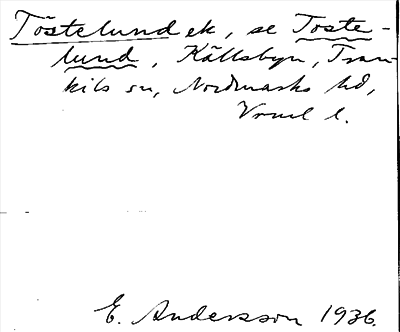 Töstelund ek, se Toste-
lund, Källsbyn, Tran-
kils sn, Nordmarks hd,
Vrml l.
E. Andersson 1936